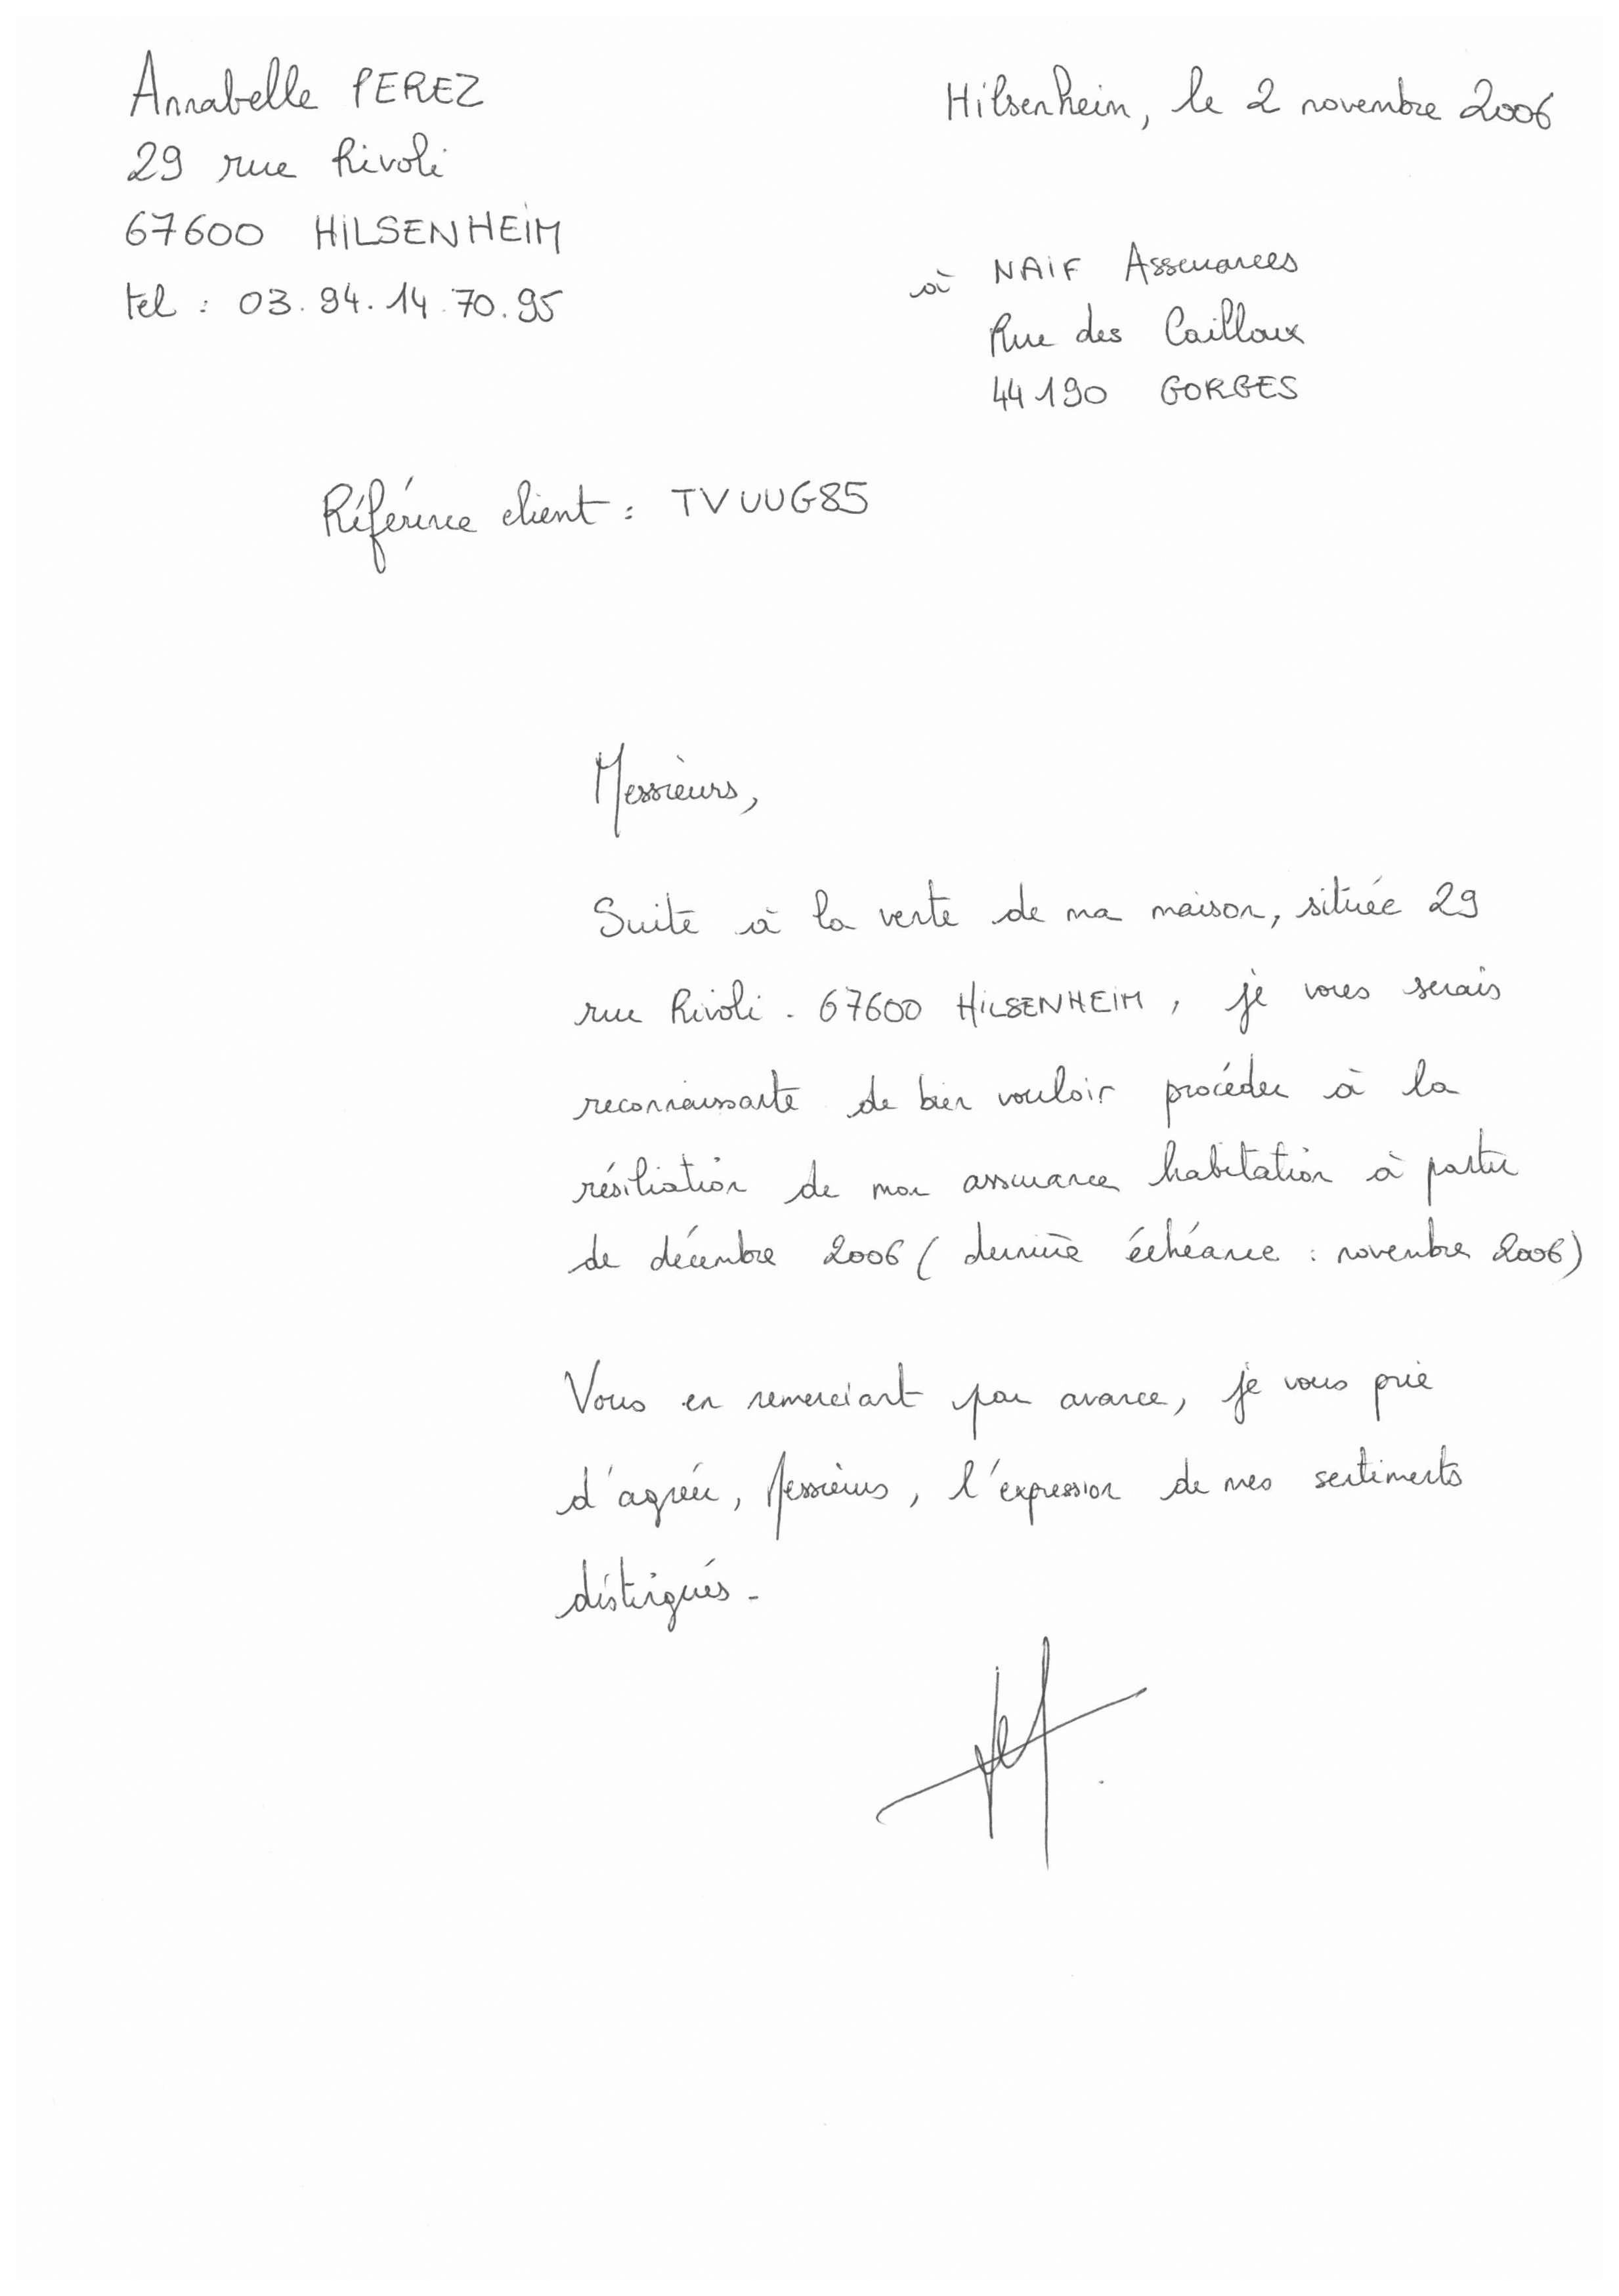 Annabelle PEREZ
29 rue Rivoli
67600 HILSENHEIM
tel : 03.94.14.70.95
Hilsenheim, le 2 novembre 2006
à NAIF Assurances
Rue des Cailloux
44190 GORGES
Référence client : TVUUG85
Messieurs,
Suite à la vente de ma maison, située 29
rue Rivoli - 67600 HILSENHEIM, je vous serais
reconnaissante de bien vouloir procéder à la
résiliation de mon assurance habitation à partir
de décembre 2006 ( dernière échéance : novembre 2006)
Vous en remerciant par avance, je vous prie
d'agréer, Messieurs, l'expression de mes sentiments
distingués.